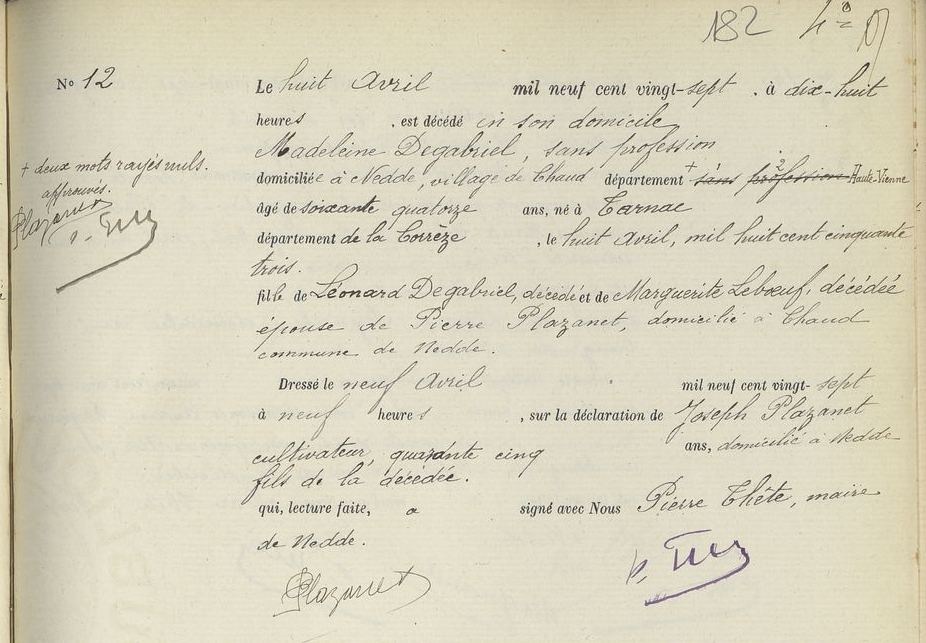 182 4º
Nº 12 Le huit Avril mil neuf cent vingt-sept. à dix-huit
heures, est décédé en son domicile
Madeleine Degabriel, sans profession
domiciliée à Nedde, village de Chaud département + sans profession Haute-Vienne
âgé de soixante quatorze ans, né à Tarnac
département de la Corrèze, le huit Avril, mil huit cent cinquante
trois.
fille de Léonard Degabriel, décédé et de Marguerite Lebœuf, décédée
épouse de Pierre Plazanet, domicilié à Chaud
commune de Nedde.
Dressé le neuf Avril mil neuf cent vingt-sept
à neuf heures, sur la déclaration de Joseph Plazanet
cultivateur, quarante cinq ans, domicilié à Nedde
fils de la décédée.
qui, lecture faite, a signé avec Nous Pierre Thête, maire
de Nedde.
Plazanet
+ deux mots rayés nuls.
approuvés.
Plazanet